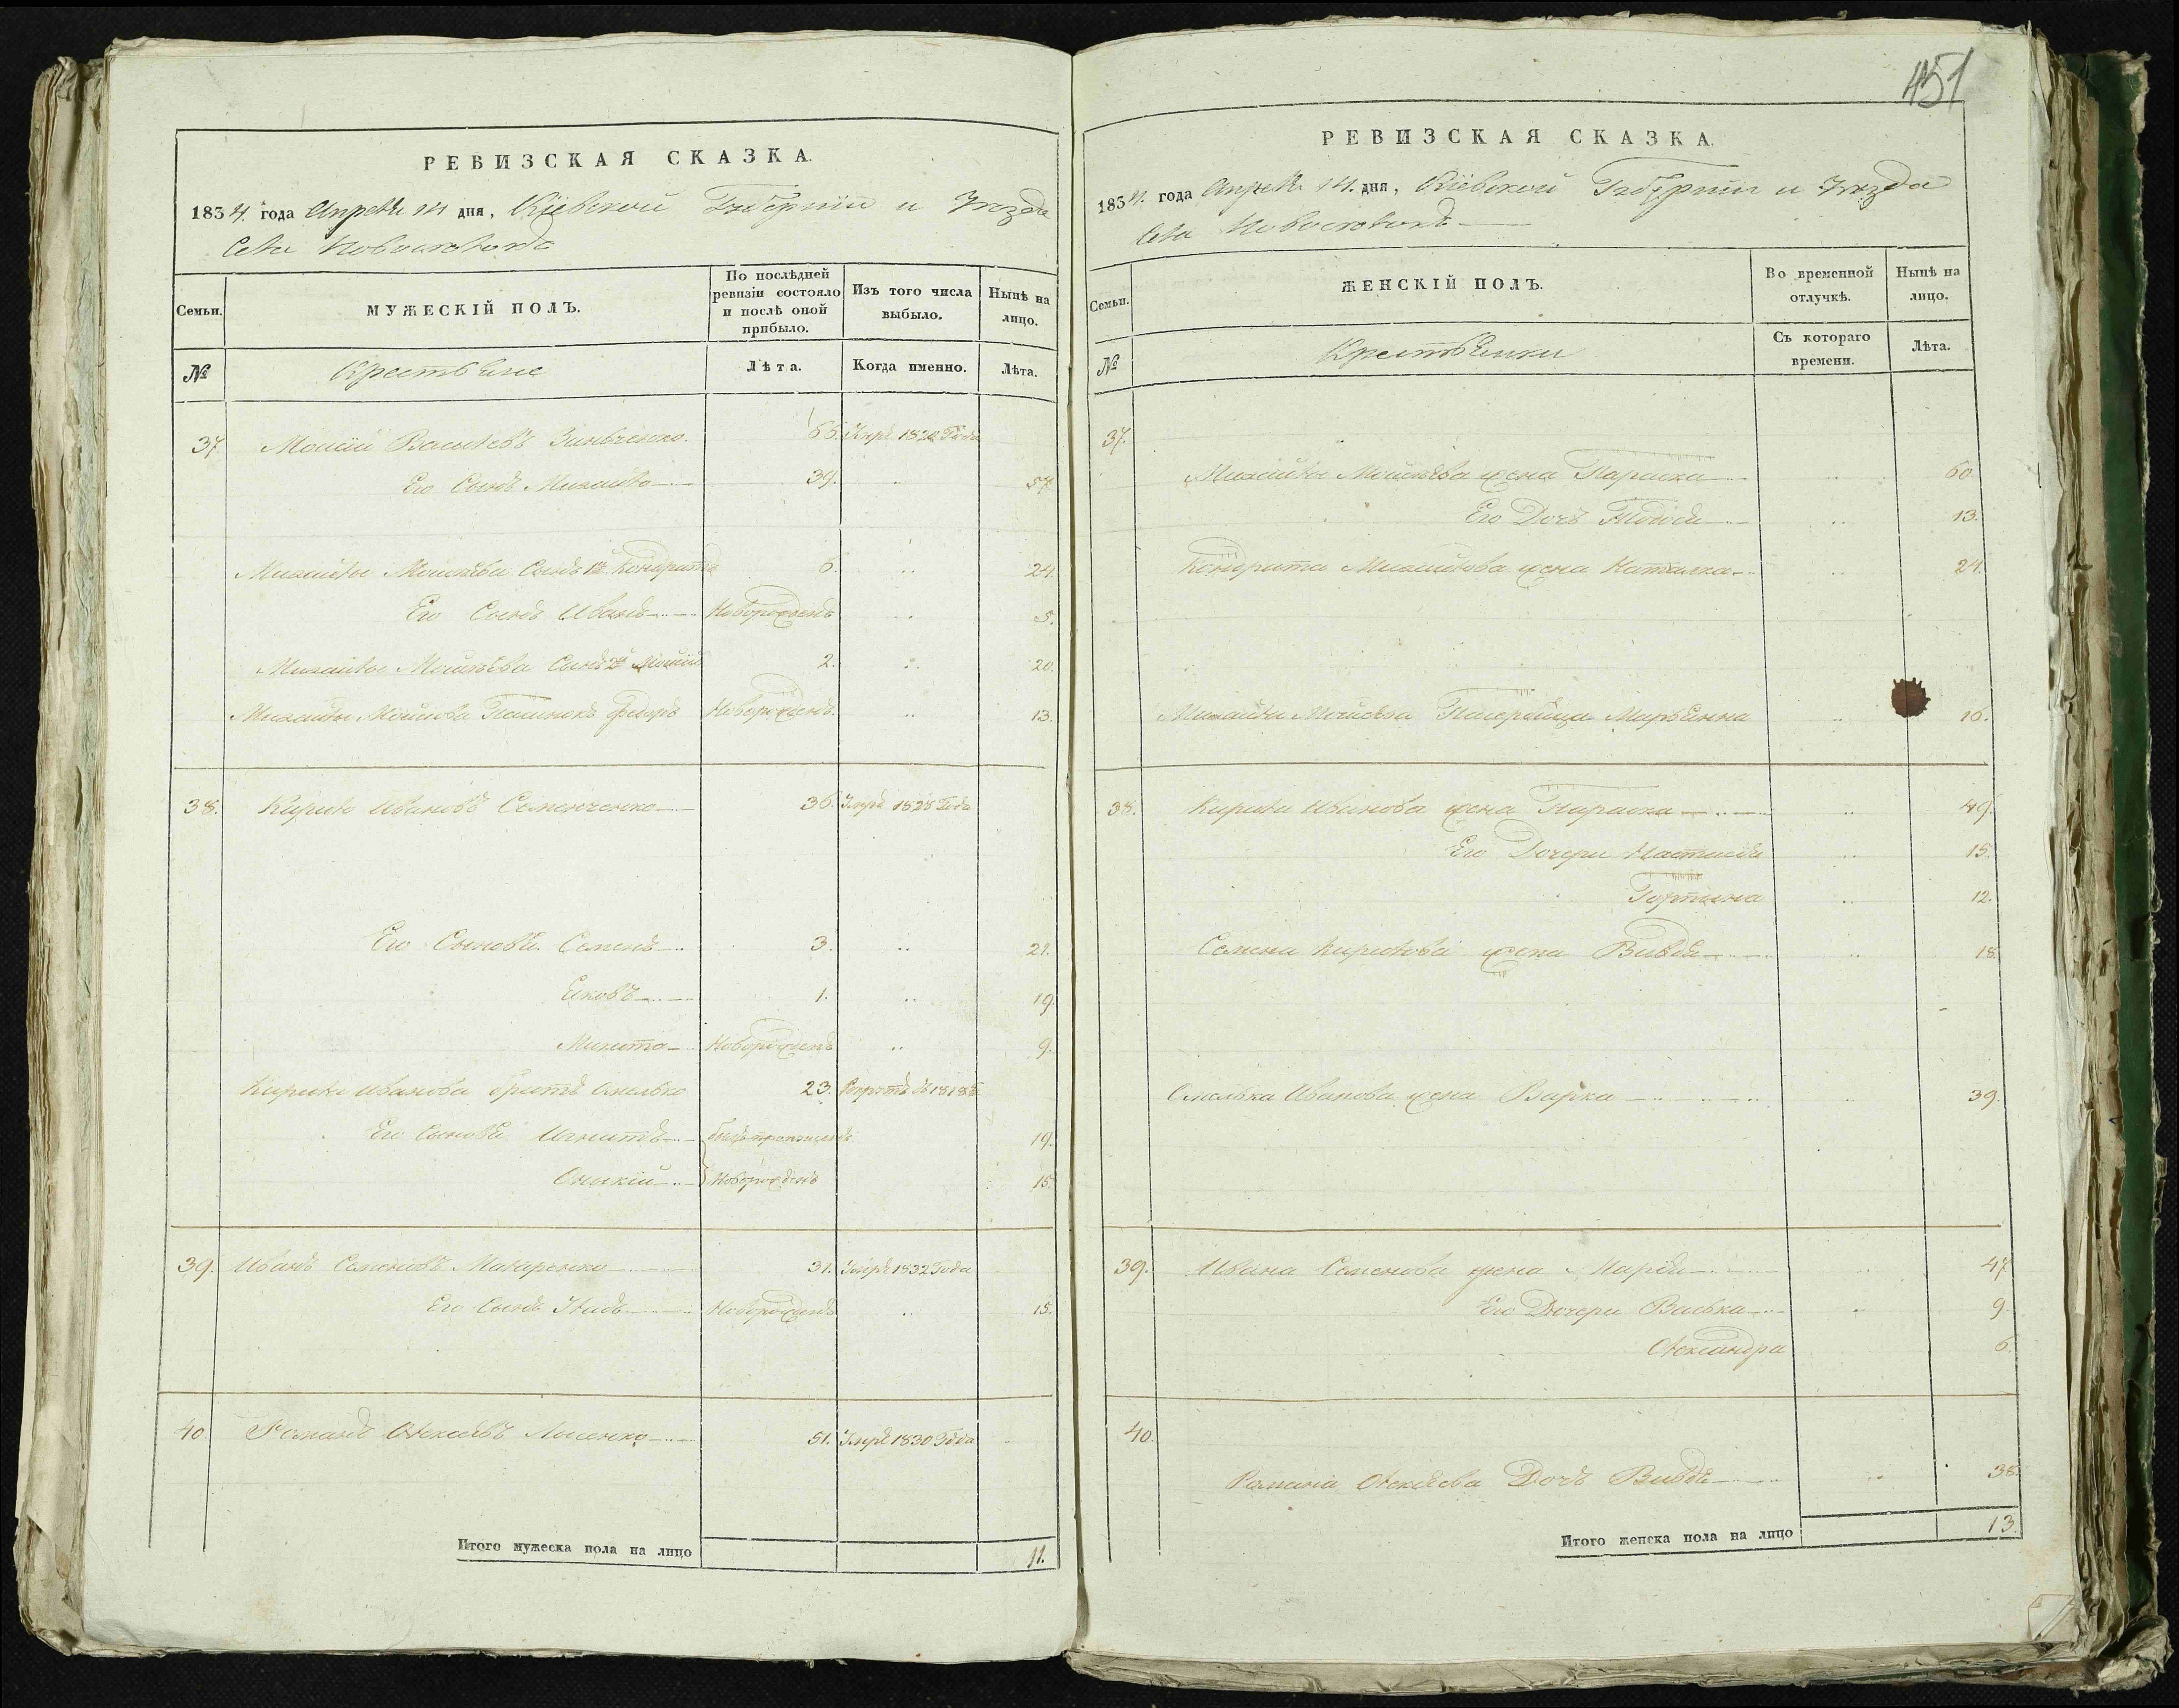 451
РЕВИЗСКАЯ СКАЗКА.
1834 года Апреля 14 дня, Кіевской Губерніи и Уезда
Села Новоселокъ
Семьи. МУЖЕСКІЙ ПОЛЪ. По послѣдней ревизіи состояло и послѣ оной прибыло. Изъ того числа выбыло. Нынѣ на лицо.
№ Крестьяне Лѣта. Когда именно. Лѣта.
37. Мойсій Васильевъ Зинченко. 66. Умре 1820 Года
Его Сынъ Михайло 39. 57.
Михайлы Мойсѣева Сынъ 1й Кондратъ 6. 24.
Его Сынъ Иванъ Новорожденъ 5.
Михайлы Мойсѣева Сынъ 2й Мойсій 2. 20.
Михайлы Мойсѣева Федоръ Новорожденъ. 13.
38. Кирило Ивановъ Семенченко 36. Умре 1828 Года
Его Сыновья Семенъ 3. 21.
Яковъ 1. 19.
Микита Новорожденъ 9.
Кирила Иванова братъ Омелько 23. въ 1818
Его Сыновья Игнатъ 19.
Оникій Новорожденъ 15.
39. Иванъ Семеновъ Макаренко 31. Умре 1832 Года
Его Сынъ Новорожденъ 15.
40. Романъ Алексѣевъ 51. Умре 1830 Года
Итого мужеска пола на лицо 11.
РЕВИЗСКАЯ СКАЗКА.
1834. года Апреля 14. дня, Кіевской Губерніи и Уезда
Села Новоселокъ
Семьи. ЖЕНСКІЙ ПОЛЪ. Во временной отлучкѣ. Нынѣ на лицо.
№ Крестьянки Съ котораго времени. Лѣта.
37.
Михайлы Мойсѣева жена Параска 60.
Его Дочь 13.
Кондрата Михайлова жена Наталка 24.
Михайлы Мойсѣева Марьянна 16.
38. Кирила Иванова жена Параска 49.
Его Дочери Настасія 15.
Горпина 12.
Семена Кирилова жена Вивдя 18.
Омелька Иванова жена Варка 39.
39. Ивана Семенова жена Марія 47.
Его Дочери Васька 9.
Александра 6.
40.
Романа Алексѣева Дочь Вивдя 38.
Итого женска пола на лицо 13.